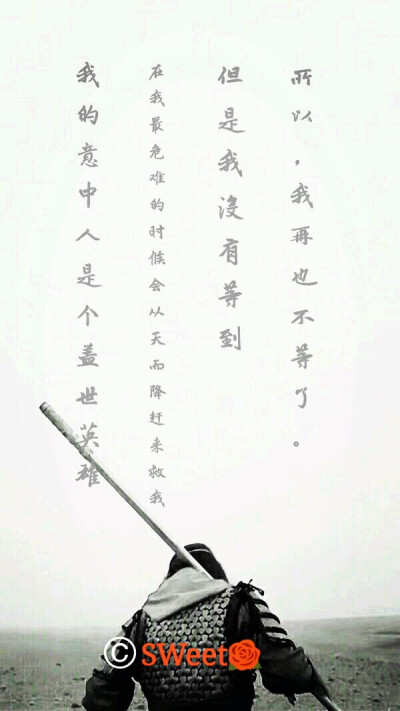 我的意中人是个盖世英雄
在我最危难的时候会从天而降赶来救我
但是我沒有等到
所以，我再也不等了。
© SWeet